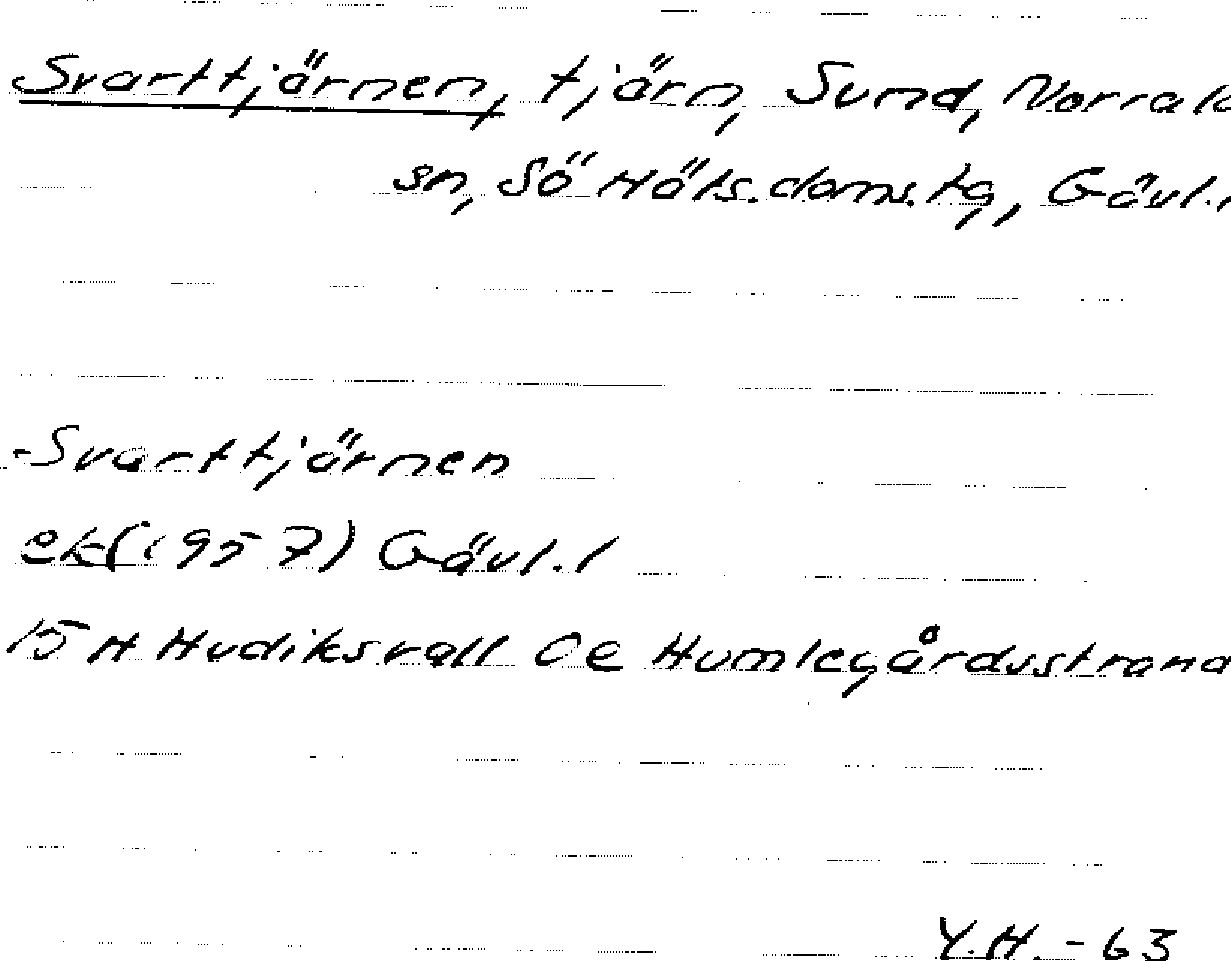 Svarttjärnen, tjärn, Sund, Norrala
sn, Sö Häls.doms.tg, Gävl.l
-Svarttjärnen
ek (1957) Gävl.l
15 H Hudiksvall 0e Humlegårdsstrand
Y.H. - 63